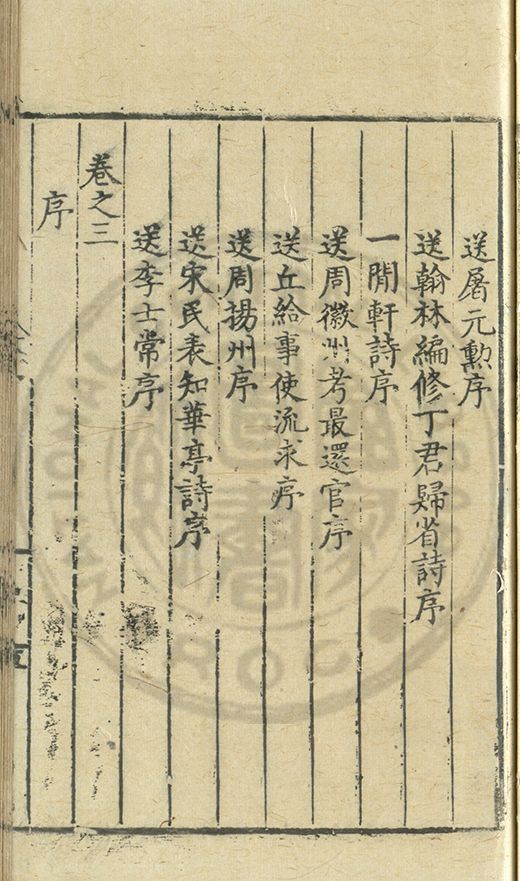 送屠元勲序
送翰林編修丁君歸省詩序
一閒軒詩序
送周徽州考最還官序
送丘給事使流求序
送周揚州序
送宋民表知華亭詩序
送李士常序
卷之三
序